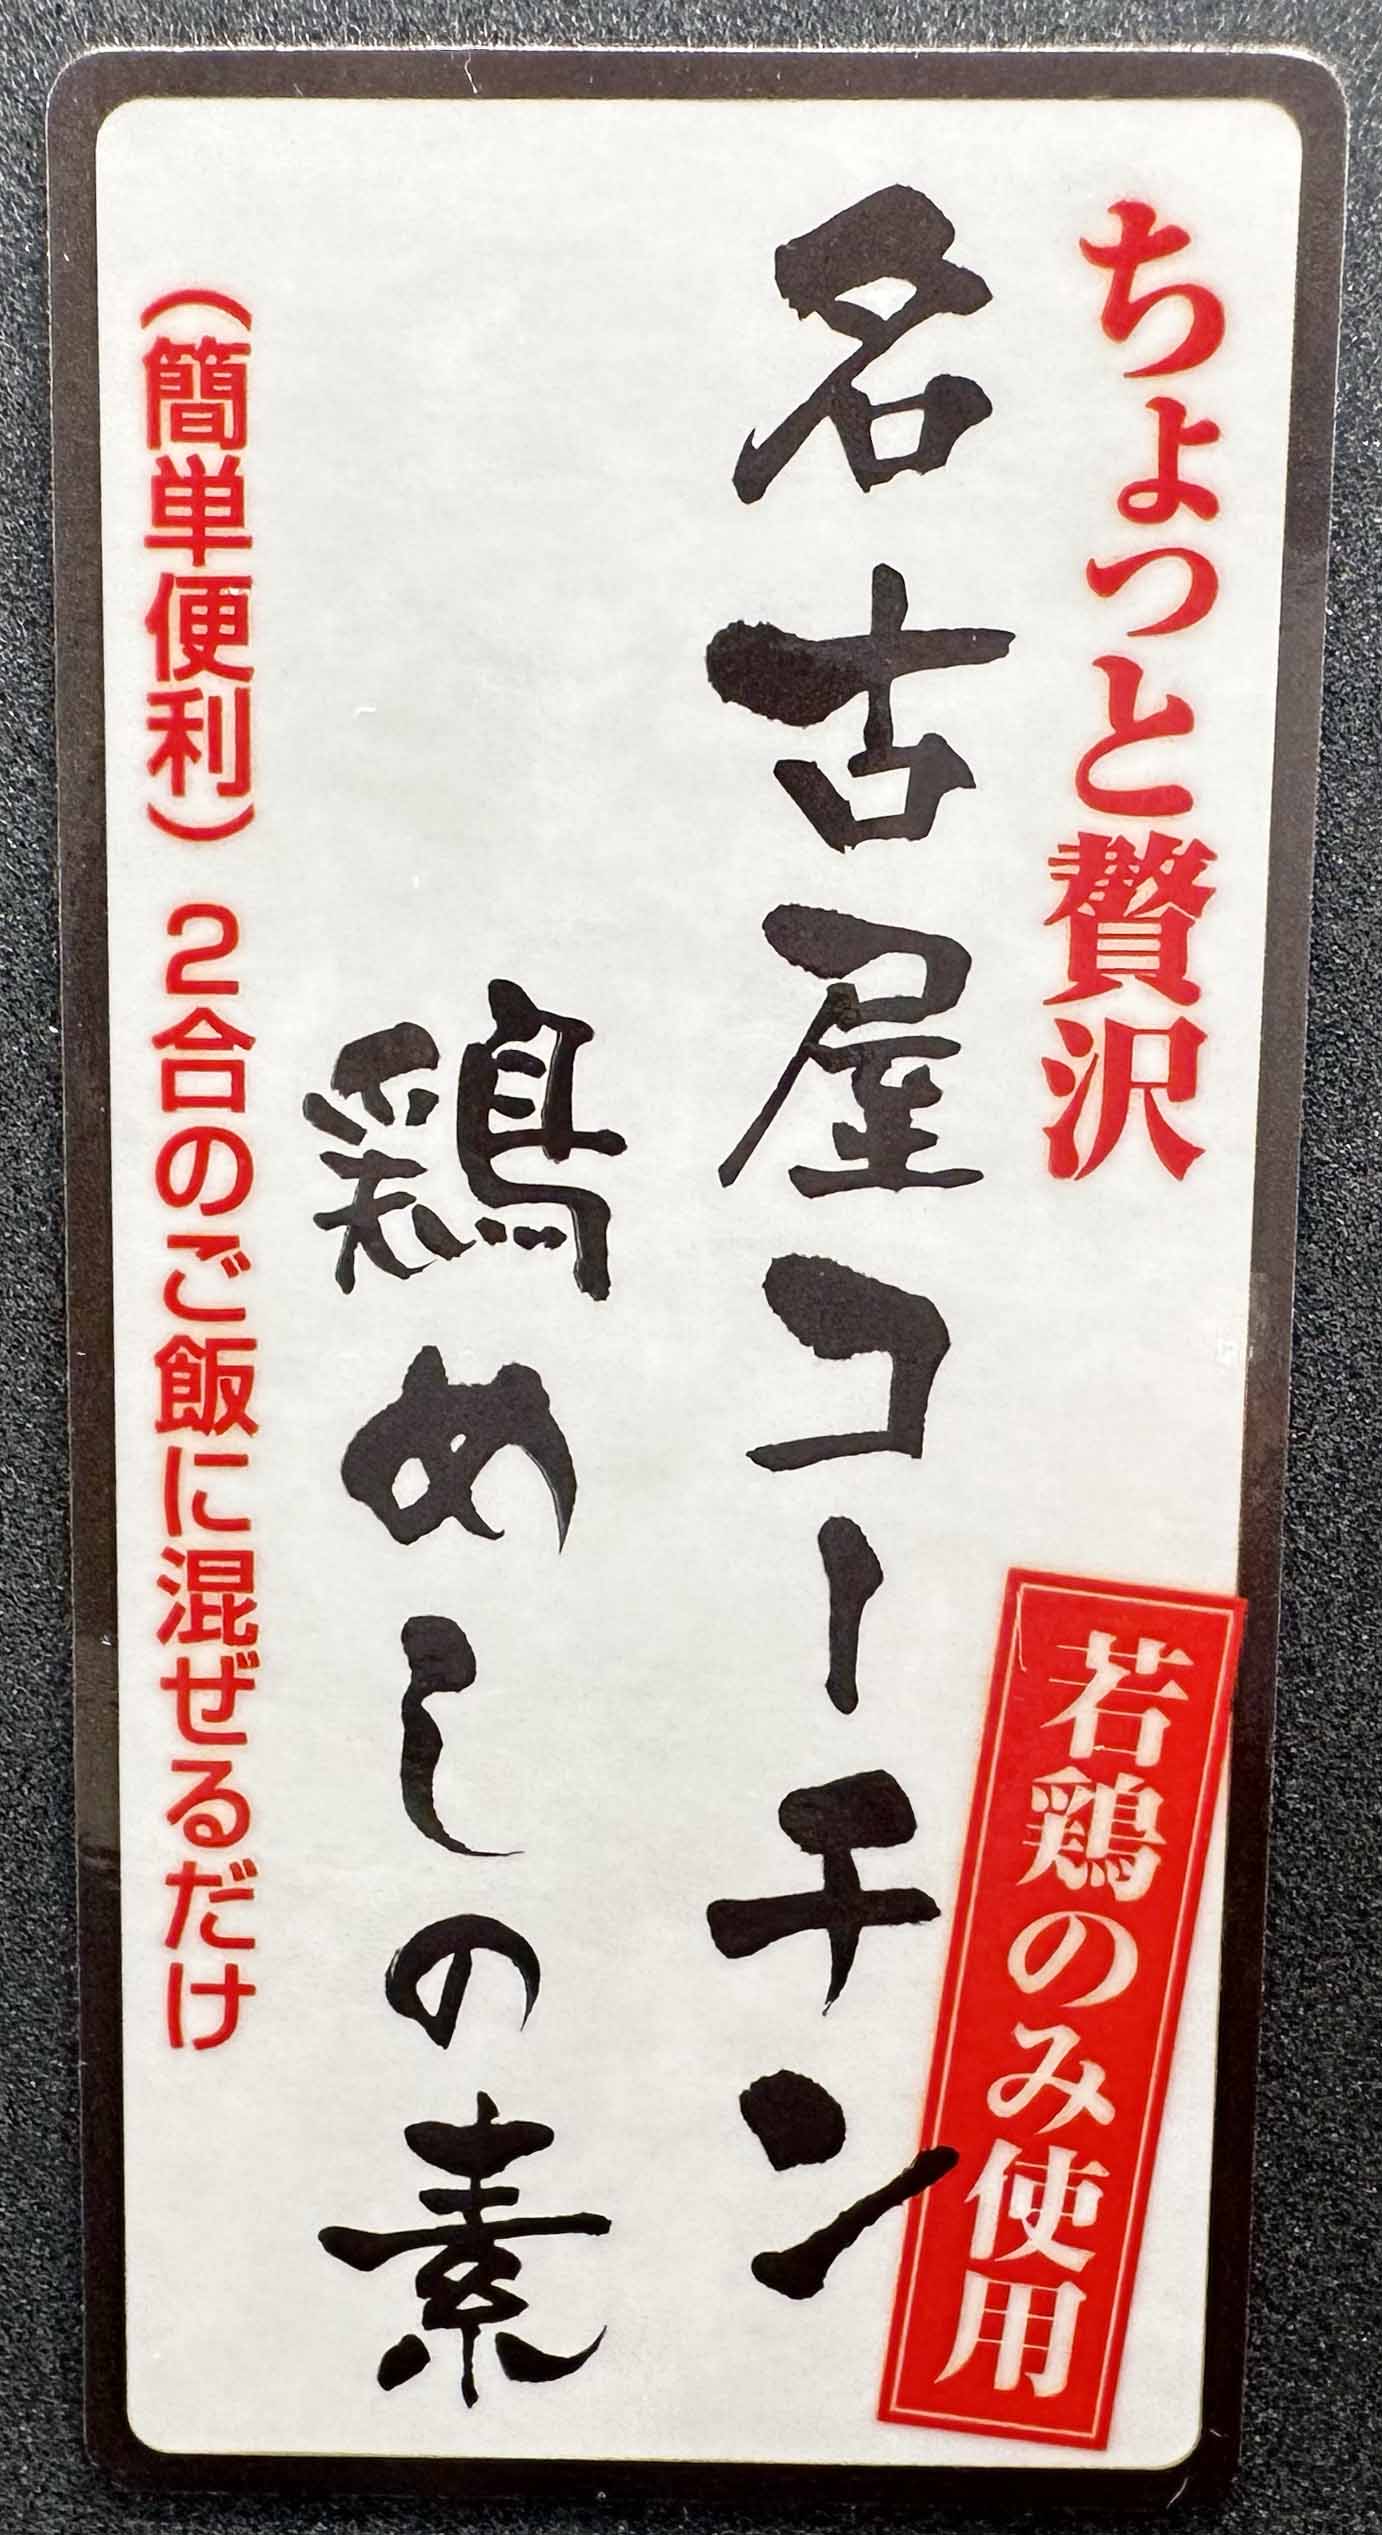 ちょっと贅沢
若鶏のみ使用
名古屋コーチン
鶏めしの素
（簡単便利）２合のご飯に混ぜるだけ